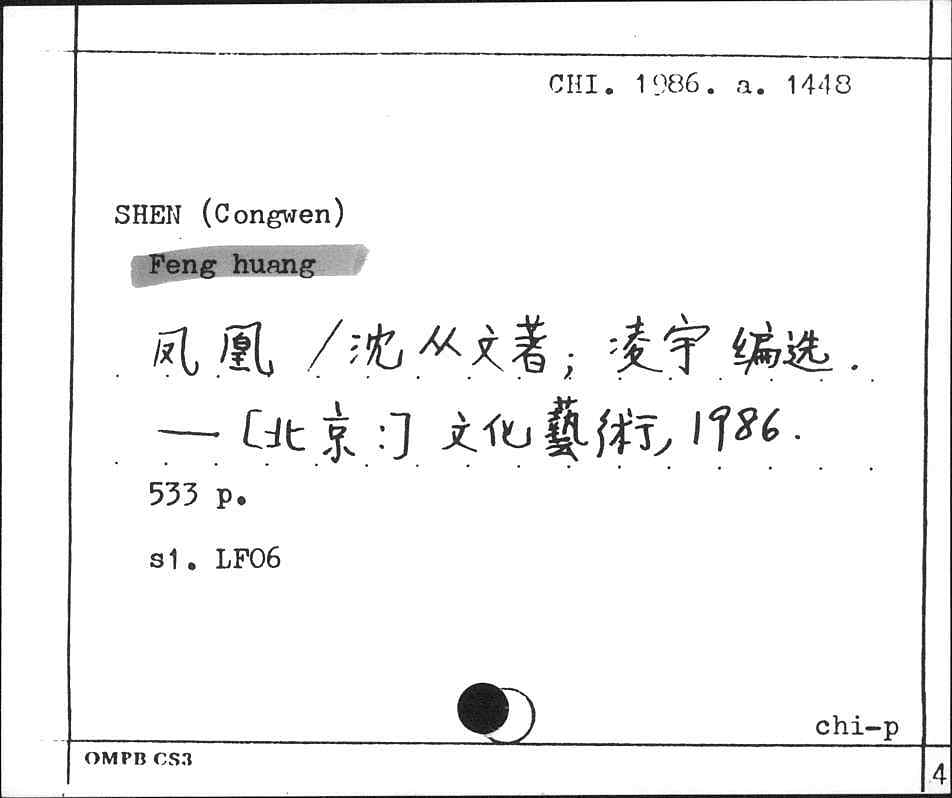 CHI. 1986. a. 1448
SHEN (Congwen)
Feng huang
凤凰 / 沈从文著; 凌宇编选.
— [北京:] 文化藝術, 1986.
533 p.
s1. LF06
chi-p
OMPB CS3
4